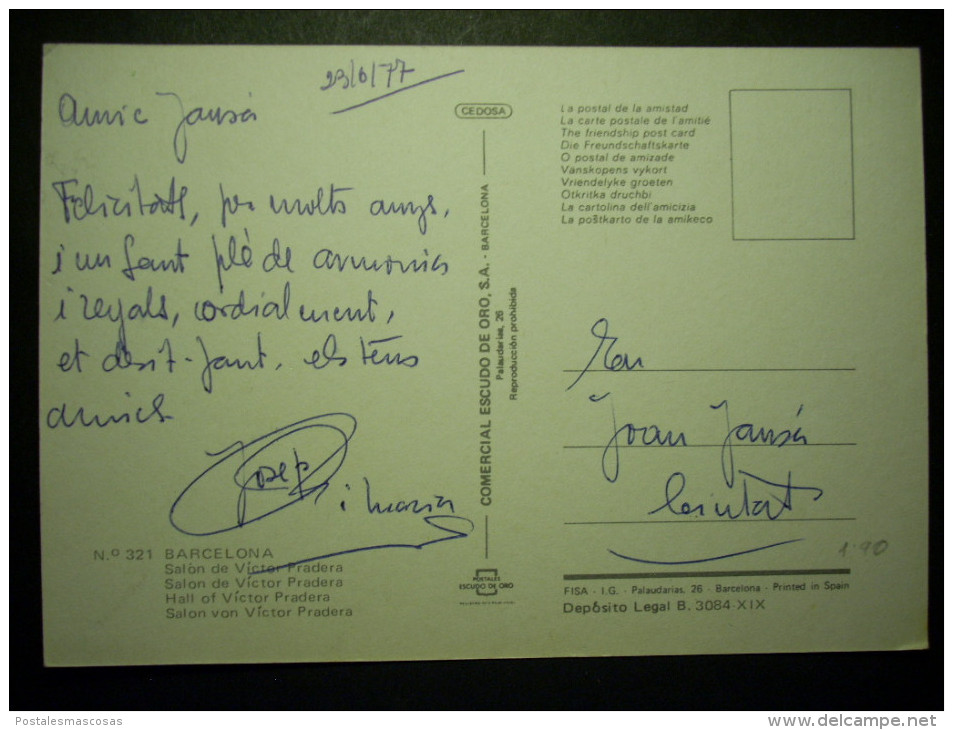 23/6/77
Amic Jansà
Felicitats, per molts anys,
i un sant plè de armonia
i regals, cordialment,
et desit-jant, els teus
amics
Josep
i Maria
N.º 321 BARCELONA
Salón de Víctor Pradera
Salon de Víctor Pradera
Hall of Víctor Pradera
Salon von Víctor Pradera
CEDOSA
COMERCIAL ESCUDO DE ORO, S.A. - BARCELONA
Palaudarias, 26
Reproducción prohibida
POSTALES
ESCUDO DE ORO
La postal de la amistad
La carte postale de l'amitié
The friendship post card
Die Freundschaftskarte
O postal de amizade
Vanskopens vykort
Vriendelyke groeten
Otkritka druchbi
La cartolina dell'amicizia
La poŝtkarto de la amikeco
En
Joan Jansà
Ciutat
1'90
FISA - I.G. - Palaudarias, 26 - Barcelona - Printed in Spain
Depósito Legal B. 3084-XIX
Postalesmascosas
www.delcampe.net